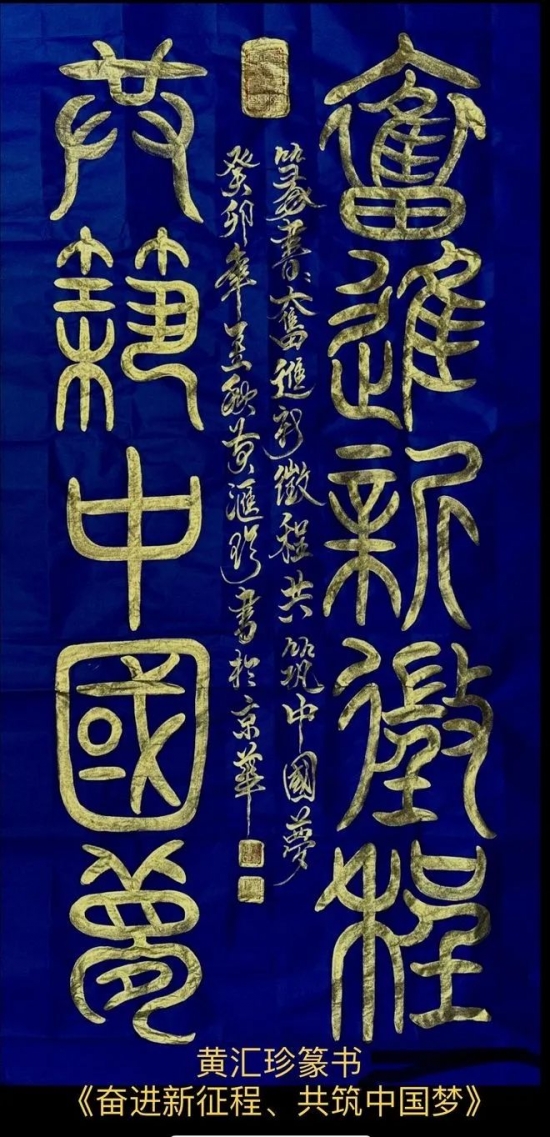 奮進新徵程
共築中國夢
篆書：奮進新徵程共筑中國夢
癸卯年孟秋黃滙珍書於京華
黄汇珍篆书
《奋进新征程、共筑中国梦》